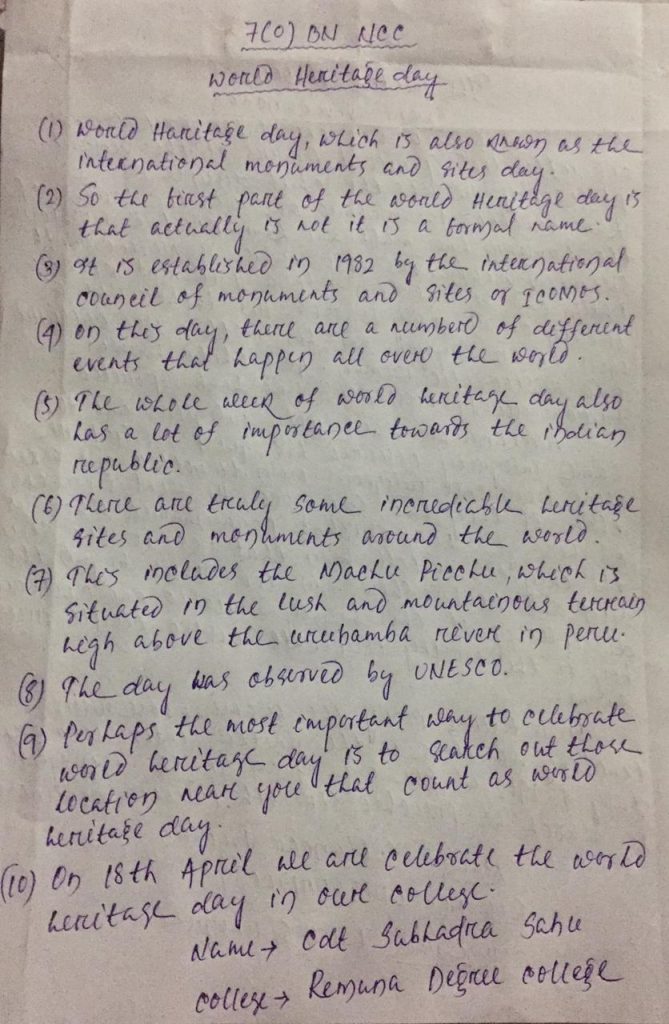 7(O) BN NCC
World Heritage day
(1) World Haritage day, which is also known as the
international monuments and sites day.
(2) So the first part of the world Heritage day is
that actually is not it is a formal name.
(3) It is established in 1982 by the international
council of monuments and sites or ICOMOS.
(4) On this day, there are a number of different
events that happen all over the world.
(5) The whole week of world heritage day also
has a lot of importance towards the indian
republic.
(6) There are truly some incrediable heritage
sites and monuments around the world.
(7) This includes the Machu Picchu, which is
situated in the lush and mountainous terrain
high above the urubamba river in peru.
(8) The day was observed by UNESCO.
(9) Perhaps the most important way to celebrate
world heritage day is to search out those
location near you that count as world
heritage day.
(10) On 18th April we are celebrate the world
heritage day in our college.
Name → Cdt Subhadra Sahu
college → Remuna Degree college